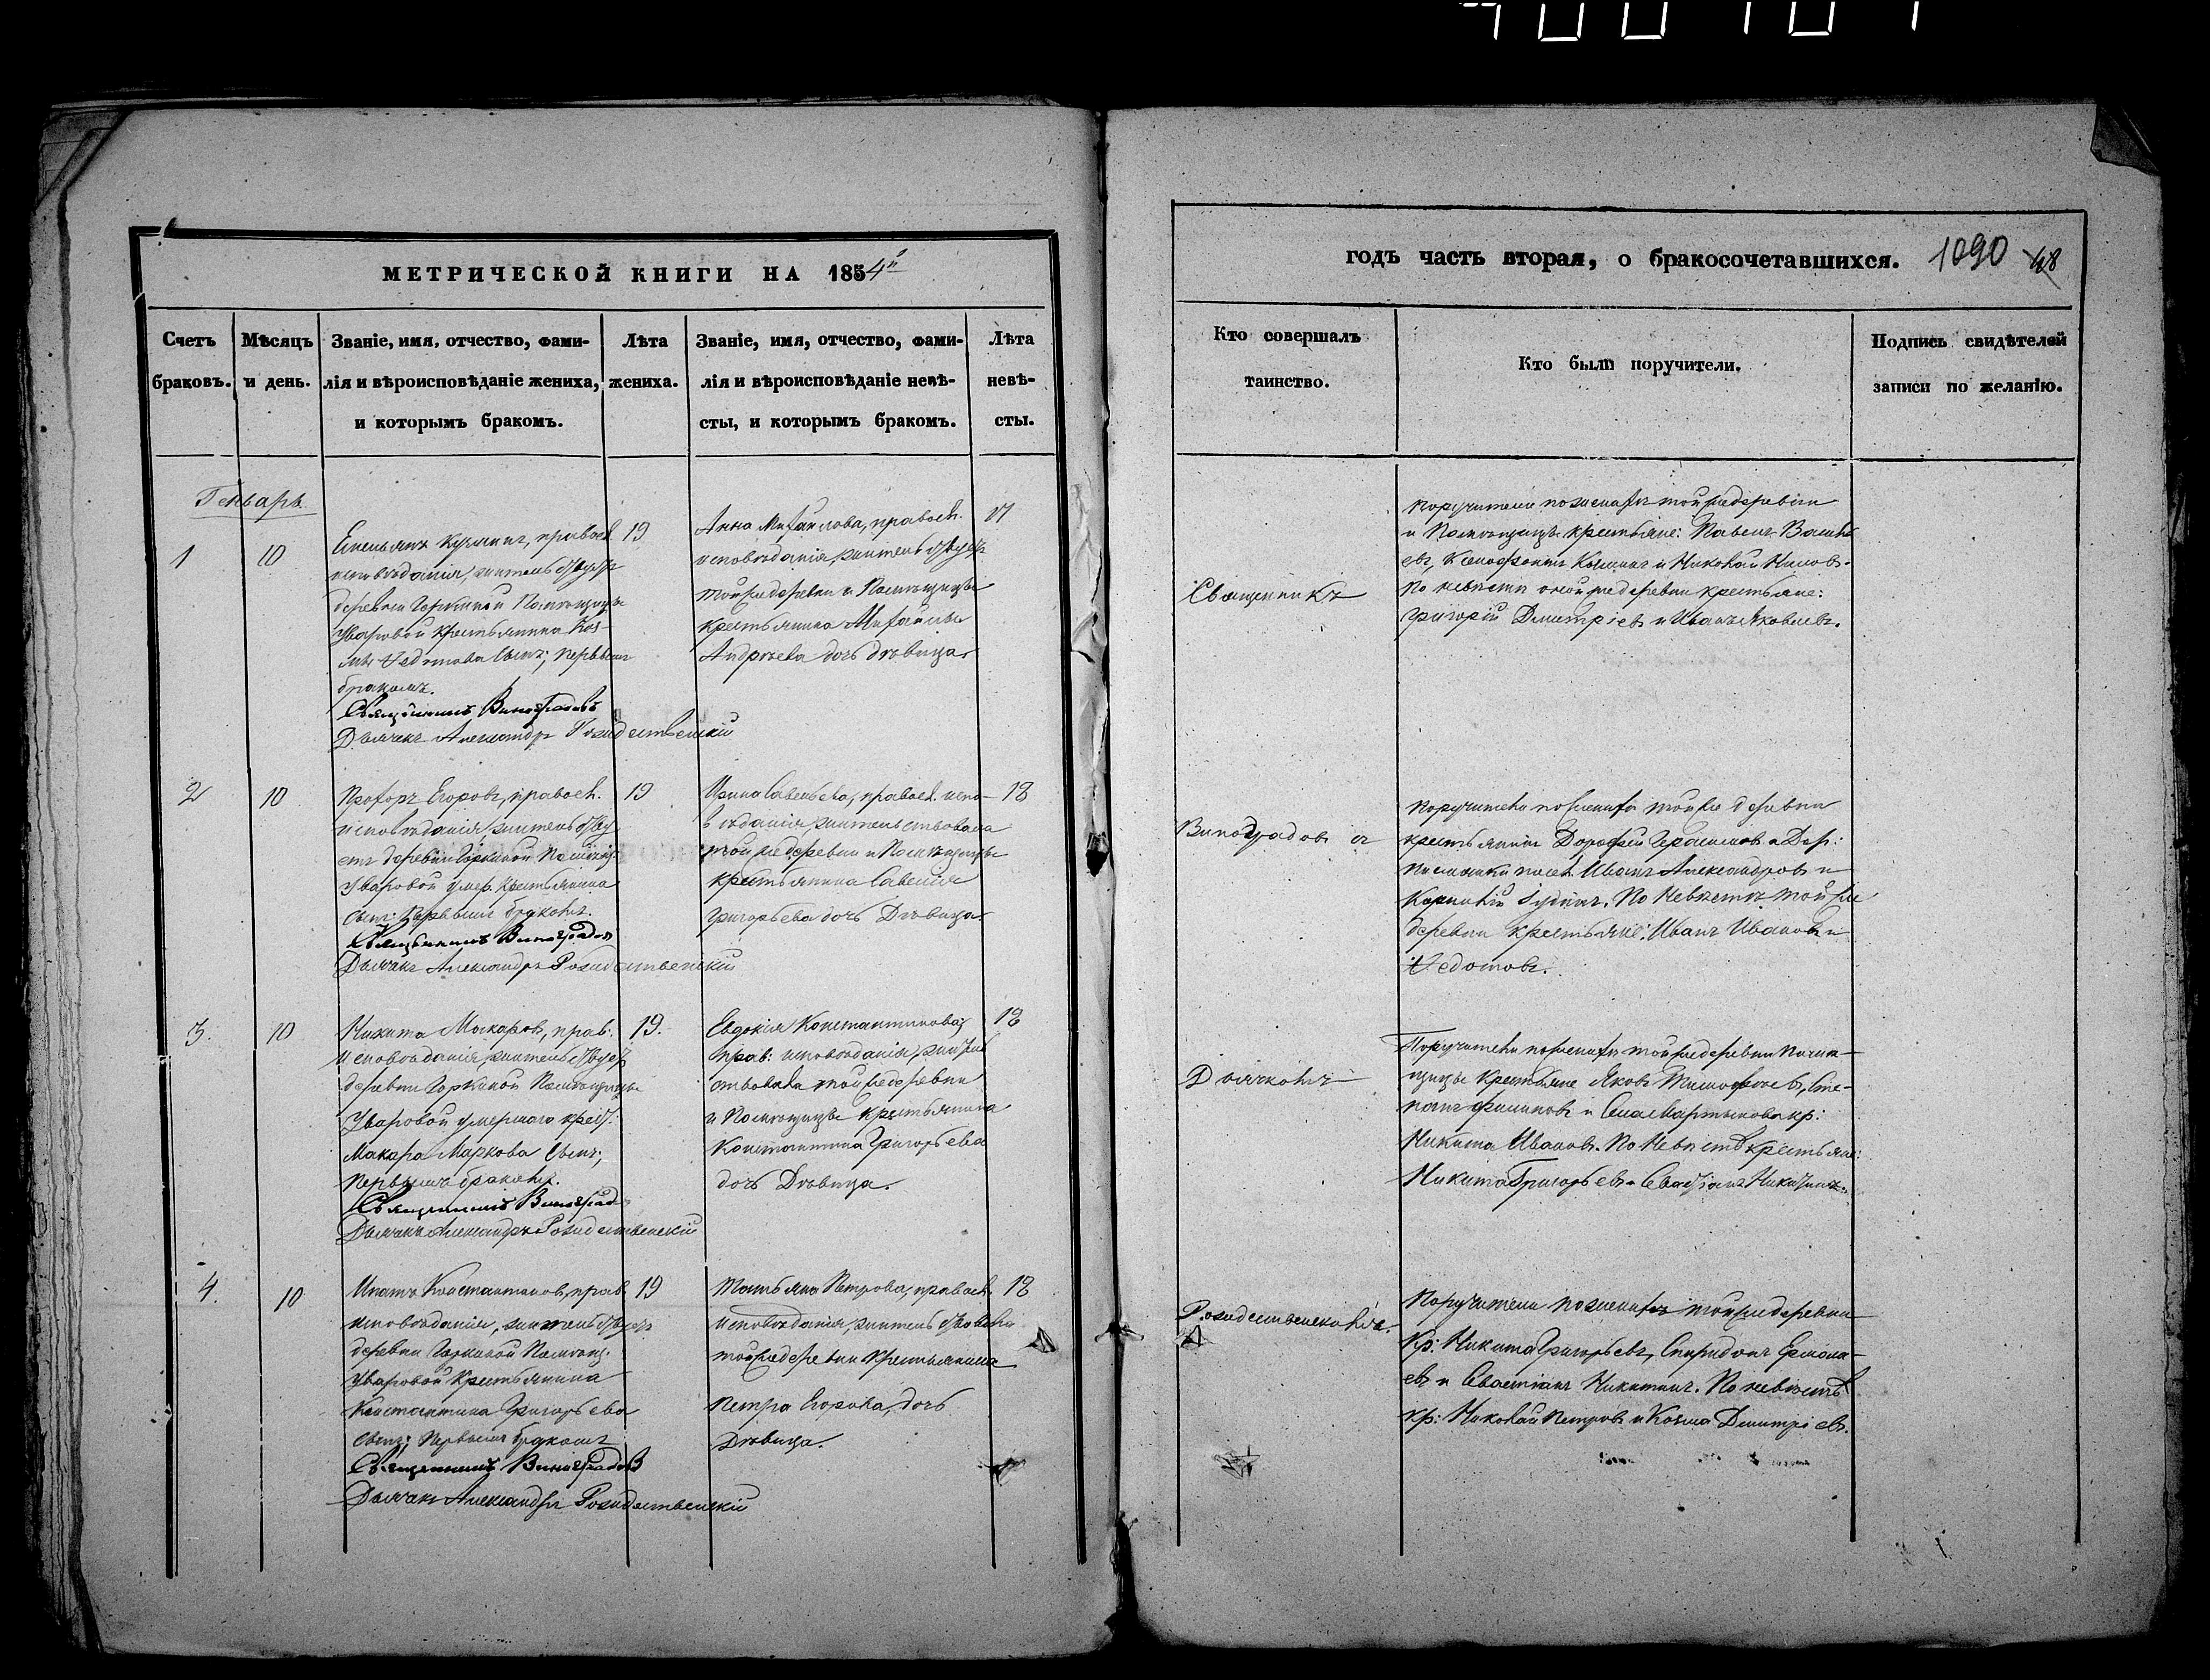 МЕТРИЧЕСКОЙ КНИГИ НА 1854й
Счетъ браковъ.
Мѣсяцъ и день.
Званіе, имя, отчество, фами-
лія и вѣроисповѣданіе жениха,
и которымъ бракомъ.
Лѣта
жениха.
Званіе, имя, отчество, фами-
лія и вѣроисповѣданіе невѣ-
сты, и которымъ бракомъ.
Лѣта
невѣ-
сты.
Генварь
1
10
правосл.
исповѣданія, жительствуетъ
деревни Горкиной Помѣщицы
Уваровой крестьянина Коз-
мы Ѳедотова сынъ; первымъ
бракомъ.
Священникъ Виноградовъ
Дьячекъ Александръ Рождественскій
19
Анна Михайлова, правосл.
исповѣданія, жительствуетъ
той же деревни и Помѣщицы
крестьянина Михайлы
Андреева дочь дѣвица.
17
2
10
Прохоръ Егоровъ, правосл.
исповѣданія жительству
етъ деревни Горкиной Помѣщиц
Уваровой умер. крестьянина
сынъ; первымъ бракомъ.
Священникъ Виноградов
Дьячекъ Александръ Рождественскій
19
Ирина Савельева, правосл. испо-
вѣданія, жительствовала
той же деревни и Помѣщицы
крестьянина Савелія
Григорьева дочь Дѣвица
18
3.
10
Никита Макаровъ, прав:
исповѣданія, жительствуетъ
деревни Горкиной Помѣщицы
Уваровой умершаго крест:
Макара Маркова сынъ;
первымъ бракомъ.
Священникъ Виноград
Дьячекъ Александръ Рождественскій
19.
Евдокія Константинова,
прав: исповѣданія, житель
ствовала той же деревни
и Помѣщицы крестьянина
Константина Григорьева
дочь Дѣвица.
18
4.
10
Игнатъ Константинов, прав.
исповѣданія, жительствуетъ
деревни Горкиной Помѣщ.
Уваровой Крестьянина
Константина Григорьева
сынъ; первымъ бракомъ
Священникъ Виноградовъ
Дьячекъ Александръ Рождественскій
19
Татьяна Петрова, правосл.
исповѣданія, жительствовала
той же деревни Крестьянина
Петра Егорова, дочь
Дѣвица.
18
годъ часть вторая, о бракосочетавшихся. 1090 48
Кто совершалъ
таинство.
Кто были поручители.
Подпись свидѣтелей
записи по желанію.
Священникъ
Поручители по женихѣ той же деревни
и Помѣщицы крестьяне: Павелъ Василь
евъ, Ксенофонтъ и Николай Ниловъ.
По невѣстѣ оной же деревни крестьяне:
Григорій Дмитріевъ и Иванъ Яковлевъ.
Виноградовъ съ
Поручители по женихѣ той же деревни
крестьянинъ Дорофей Герасимовъ
Иванъ Александровъ и
По Невѣстѣ той же
деревни крестьяне: Иванъ Ивановъ и
Ѳедотовъ.
Дьячкомъ
Поручители по женихѣ той же деревни Помѣ-
щицы Крестьяне Яковъ Тимофеевъ, Сте-
панъ Филиповъ и кр:
Никита Ивановъ. По Невѣстѣ крестьяне:
Никита Григорьевъ и Севастіанъ Никитинъ.
Рождественскимъ.
Поручители по женихѣ той же деревни
Кр: Никита Григорьевъ, Спиридонъ Ермола-
евъ и Севастіанъ Никитинъ. По невѣстѣ
кр: Николай Петровъ и Козма Дмитріевъ.